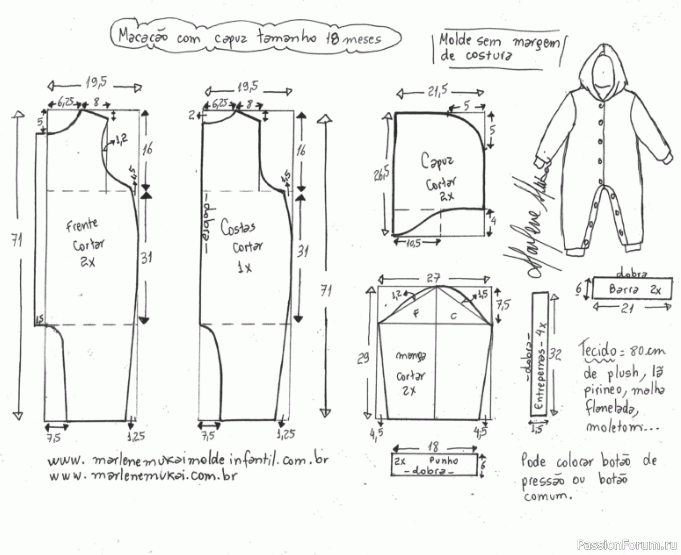 Macacão com capuz tamanho 18 meses
Molde sem margem
de costura
19,5
6,25
8
5
1,2
16
4,5
71
Frente
cortar
2x
31
1,5
7,5
1,25
19,5
6,25
8
2
16
4,5
-dobra-
Costas
cortar
1x
31
71
7,5
1,25
21,5
5
5
26,5
Capuz
cortar
2x
4
10,5
Marlene Mukai
27
1,2
1,5
7,5
F
C
29
manga
cortar
2x
4,5
4,5
18
2x Punho
-dobra-
6
-dobra-
Entrepernas-4x
32
1,5
dobra
6
Barra 2x
21
Tecido = 80 cm
de plush, lã
pirineo, malha
flanelada,
moletom...
Pode colocar botão de
pressão ou botão
comum.
www.marlenemukaimoldeinfantil.com.br
www.marlenemukai.com.br
PassionForum.ru